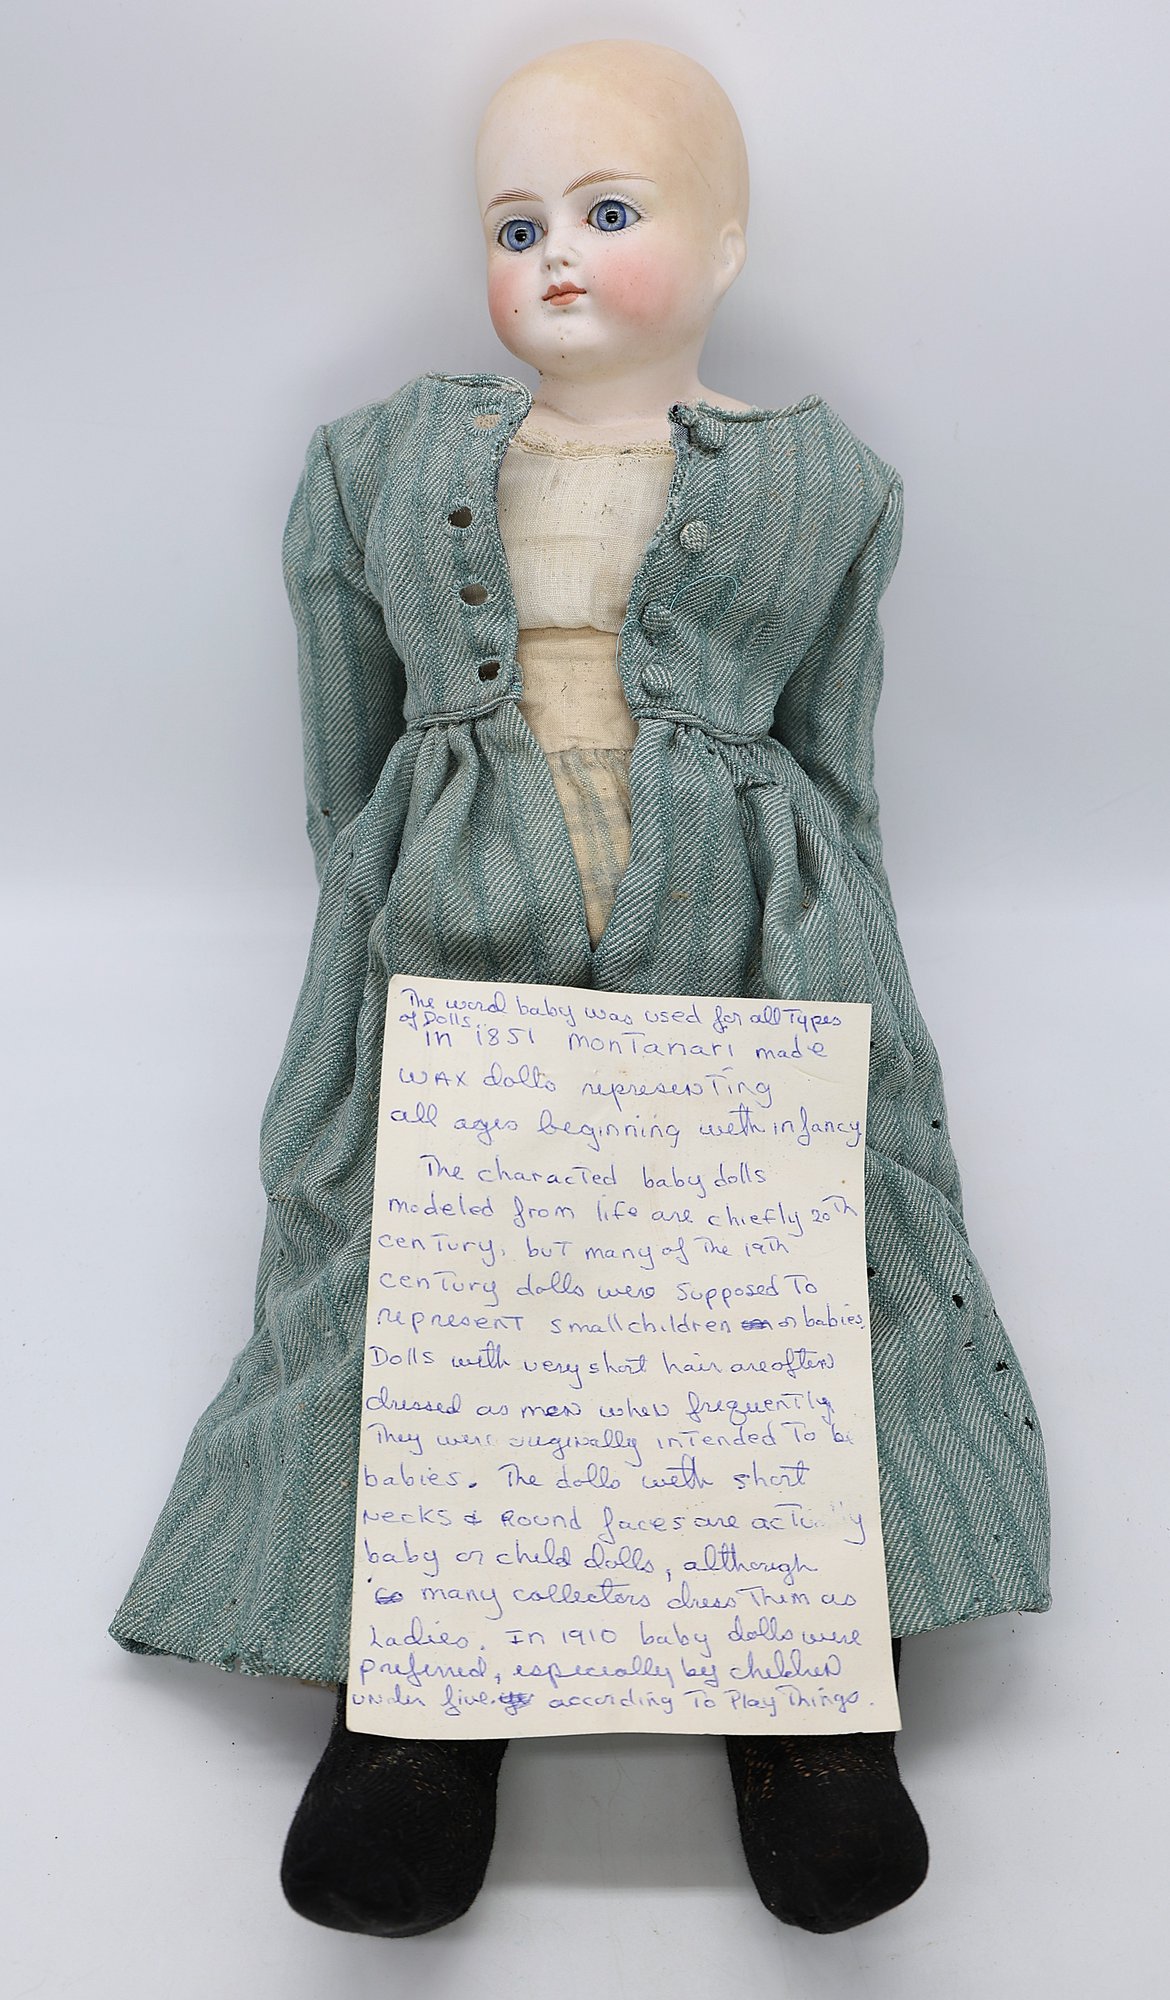 The word baby was used for all Types
of Dolls.
in 1851 Montanari made
WAX dolls representing
all ages beginning with infancy
The characted baby dolls
modeled from life are chiefly 20th
century, but many of The 19th
century dolls were supposed To
represent small children or babies.
Dolls with very short hair are often
dressed as men when frequently
They were originally intended To be
babies. The dolls with short
necks & Round faces are actually
baby or child dolls, although
many collectors dress Them as
Ladies. In 1910 baby dolls were
preferred, especially by children
under five according To Play Things.